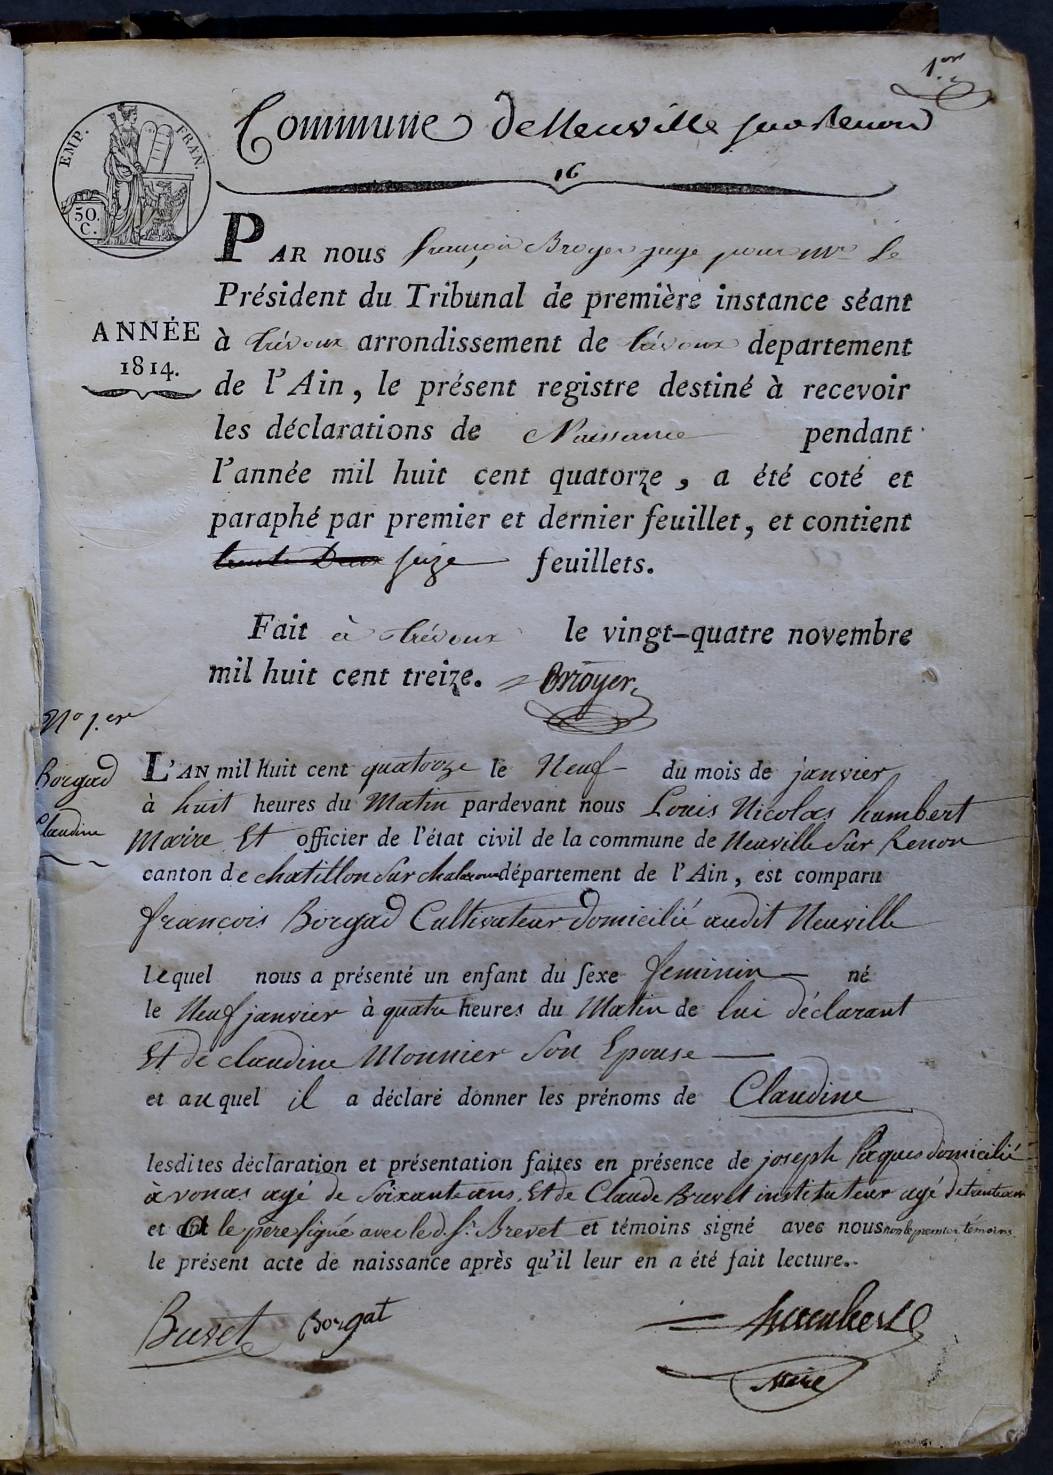 1.er
Commune de Neuville sur Renon
16
EMP. FRAN.
50.
C.
PAR nous françois Broyer juge pour Mr Le
Président du Tribunal de première instance séant
ANNÉE
1814.
à trévoux arrondissement de trévoux departement
de l'Ain, le présent registre destiné à recevoir
les déclarations de Naissance pendant
l'année mil huit cent quatorze, a été coté et
paraphé par premier et dernier feuillet, et contient
trente Deux seize feuillets.
Fait à trévoux le vingt-quatre novembre
mil huit cent treize. Broyer
No 1.er
Borgad
Claudine
L'AN mil huit cent quatorze le Neuf du mois de janvier
à huit heures du Matin pardevant nous Louis Nicolas humbert
Maire Et officier de l'état civil de la commune de Neuville Sur Renon
canton de chatillon Sur chalaronne département de l'Ain, est comparu
françois Borgad Cultivateur domicilié audit Neuville
lequel nous a présenté un enfant du sexe feminin né
le Neuf janvier à quatre heures du Matin de lui déclarant
Et de claudine Monnier Son Epouse
et auquel il a déclaré donner les prénoms de Claudine
lesdites déclaration et présentation faites en présence de joseph Paques domicilié
à vonas agé de Soixante ans, Et de Claude Brevet instituteur agé de trente ans
et le père signé avec led. Sr. Brevet et témoins signé avec nous non le premier témoins.
le présent acte de naissance après qu'il leur en a été fait lecture.
Brevet Borgat humbert
Maire